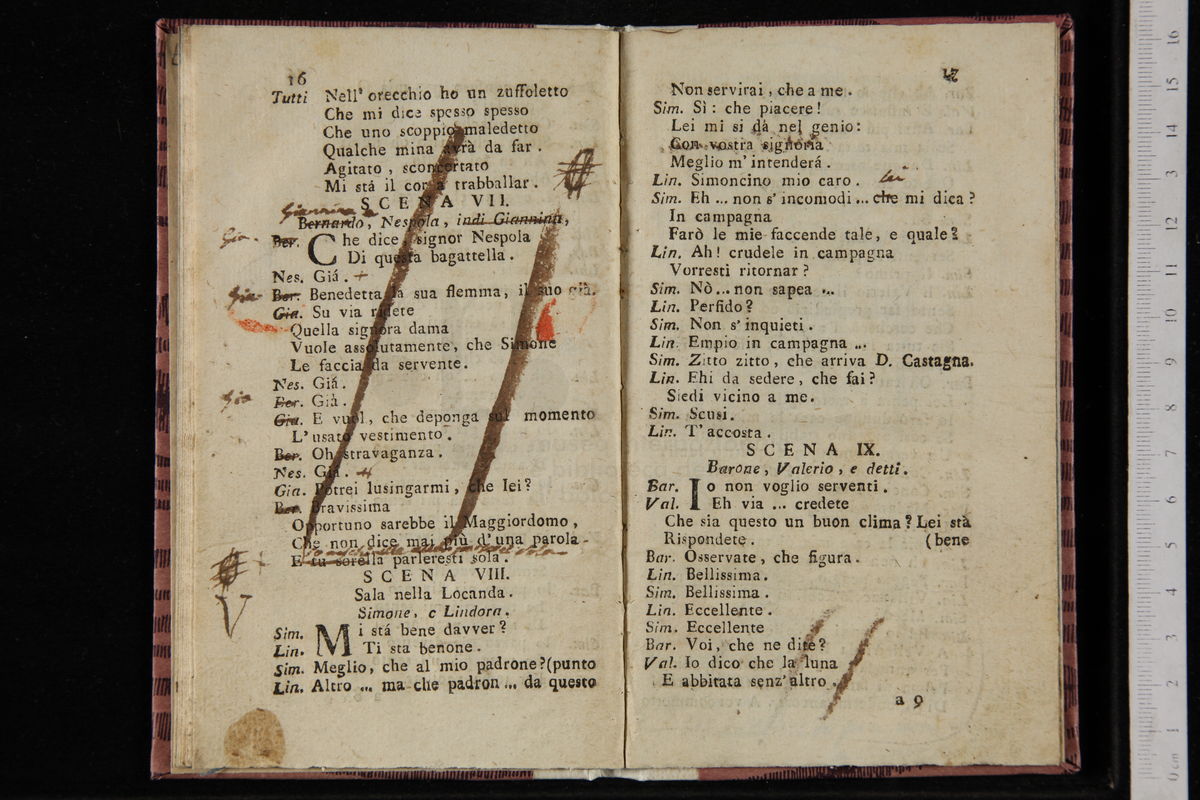 16
Tutti Nell' orecchio ho un zuffoletto
Che mi dice spesso spesso
Che uno scoppio maledetto
Qualche mina avrà da far .
Agitato , sconcertato
Mi stá il cor a trabballar .
SCENA VII.
Giannina e
Bernardo, Nespola, indi Giannina,
Gia. Ber. Che dice signor Nespola
Di questa bagattella .
Nes. Giá .
Gia Ber. Benedetta la sua flemma, il suo già.
Gia. Su via ridete
Quella signora dama
Vuole assolutamente, che Simone
Le faccia da servente .
Nes. Giá .
Gia Ber. Già .
Gia. E vuol , che deponga sul momento
L' usato vestimento .
Ber. Oh stravaganza .
Nes. Giá .
Gia. Potrei lusingarmi, che lei?
Ber. Bravissima
Opportuno sarebbe il Maggiordomo ,
Che non dice mai più d'una parola
E tu sorella parleresti sola .
SCENA VIII.
Sala nella Locanda .
Simone, e Lindora .
Sim. Mi stá bene davver ?
Lin. Ti sta benone .
Sim. Meglio, che al mio padrone? (punto
Lin. Altro ... ma che padron ... da questo
17
Non servirai, che a me .
Sim. Sì : che piacere !
Lei mi si dà nel genio :
Con vostra signoria
Meglio m' intenderá .
Lin. Simoncino mio caro . lei
Sim. Eh ... non s' incomodi ... che mi dica ?
In campagna
Farò le mie faccende tale, e quale?
Lin. Ah! crudele in campagna
Vorresti ritornar ?
Sim. Nò ... non sapea ...
Lin. Perfido ?
Sim. Non s' inquieti .
Lin. Empio in campagna ...
Sim. Zitto zitto , che arriva D. Castagna.
Lin. Ehi da sedere, che fai ?
Siedi vicino a me .
Sim. Scusi .
Lin. T' accosta .
SCENA IX.
Barone, Valerio, e detti .
Bar. Io non voglio serventi .
Val. Eh via ... credete
Che sia questo un buon clima? Lei stà
Rispondete . (bene
Bar. Osservate , che figura .
Lin. Bellissima .
Sim. Bellissima .
Lin. Eccellente .
Sim. Eccellente
Bar. Voi, che ne dite ?
Val. Io dico che la luna
E abbitata senz' altro .
a 9